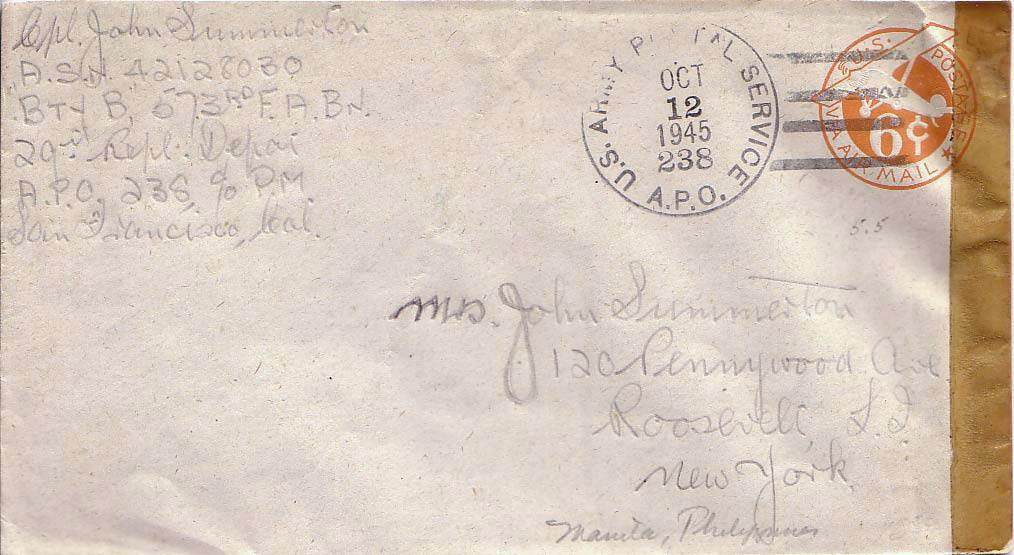 Cpl. John Summerton
A.S.N. 42128030
BTY B, 573RD F.A. BN.
29th Repl. Depot
A.P.O. 238, % P.M.
San Francisco, Cal.
U.S. ARMY POSTAL SERVICE
OCT
12
1945
238
A.P.O.
U.S. POSTAGE
6¢
VIA AIR MAIL
5.5
Mrs. John Summerton
120 Pennywood Ave
Roosevelt L.I.
New York
Manila, Philippines